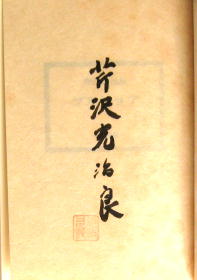 芹沢光治良